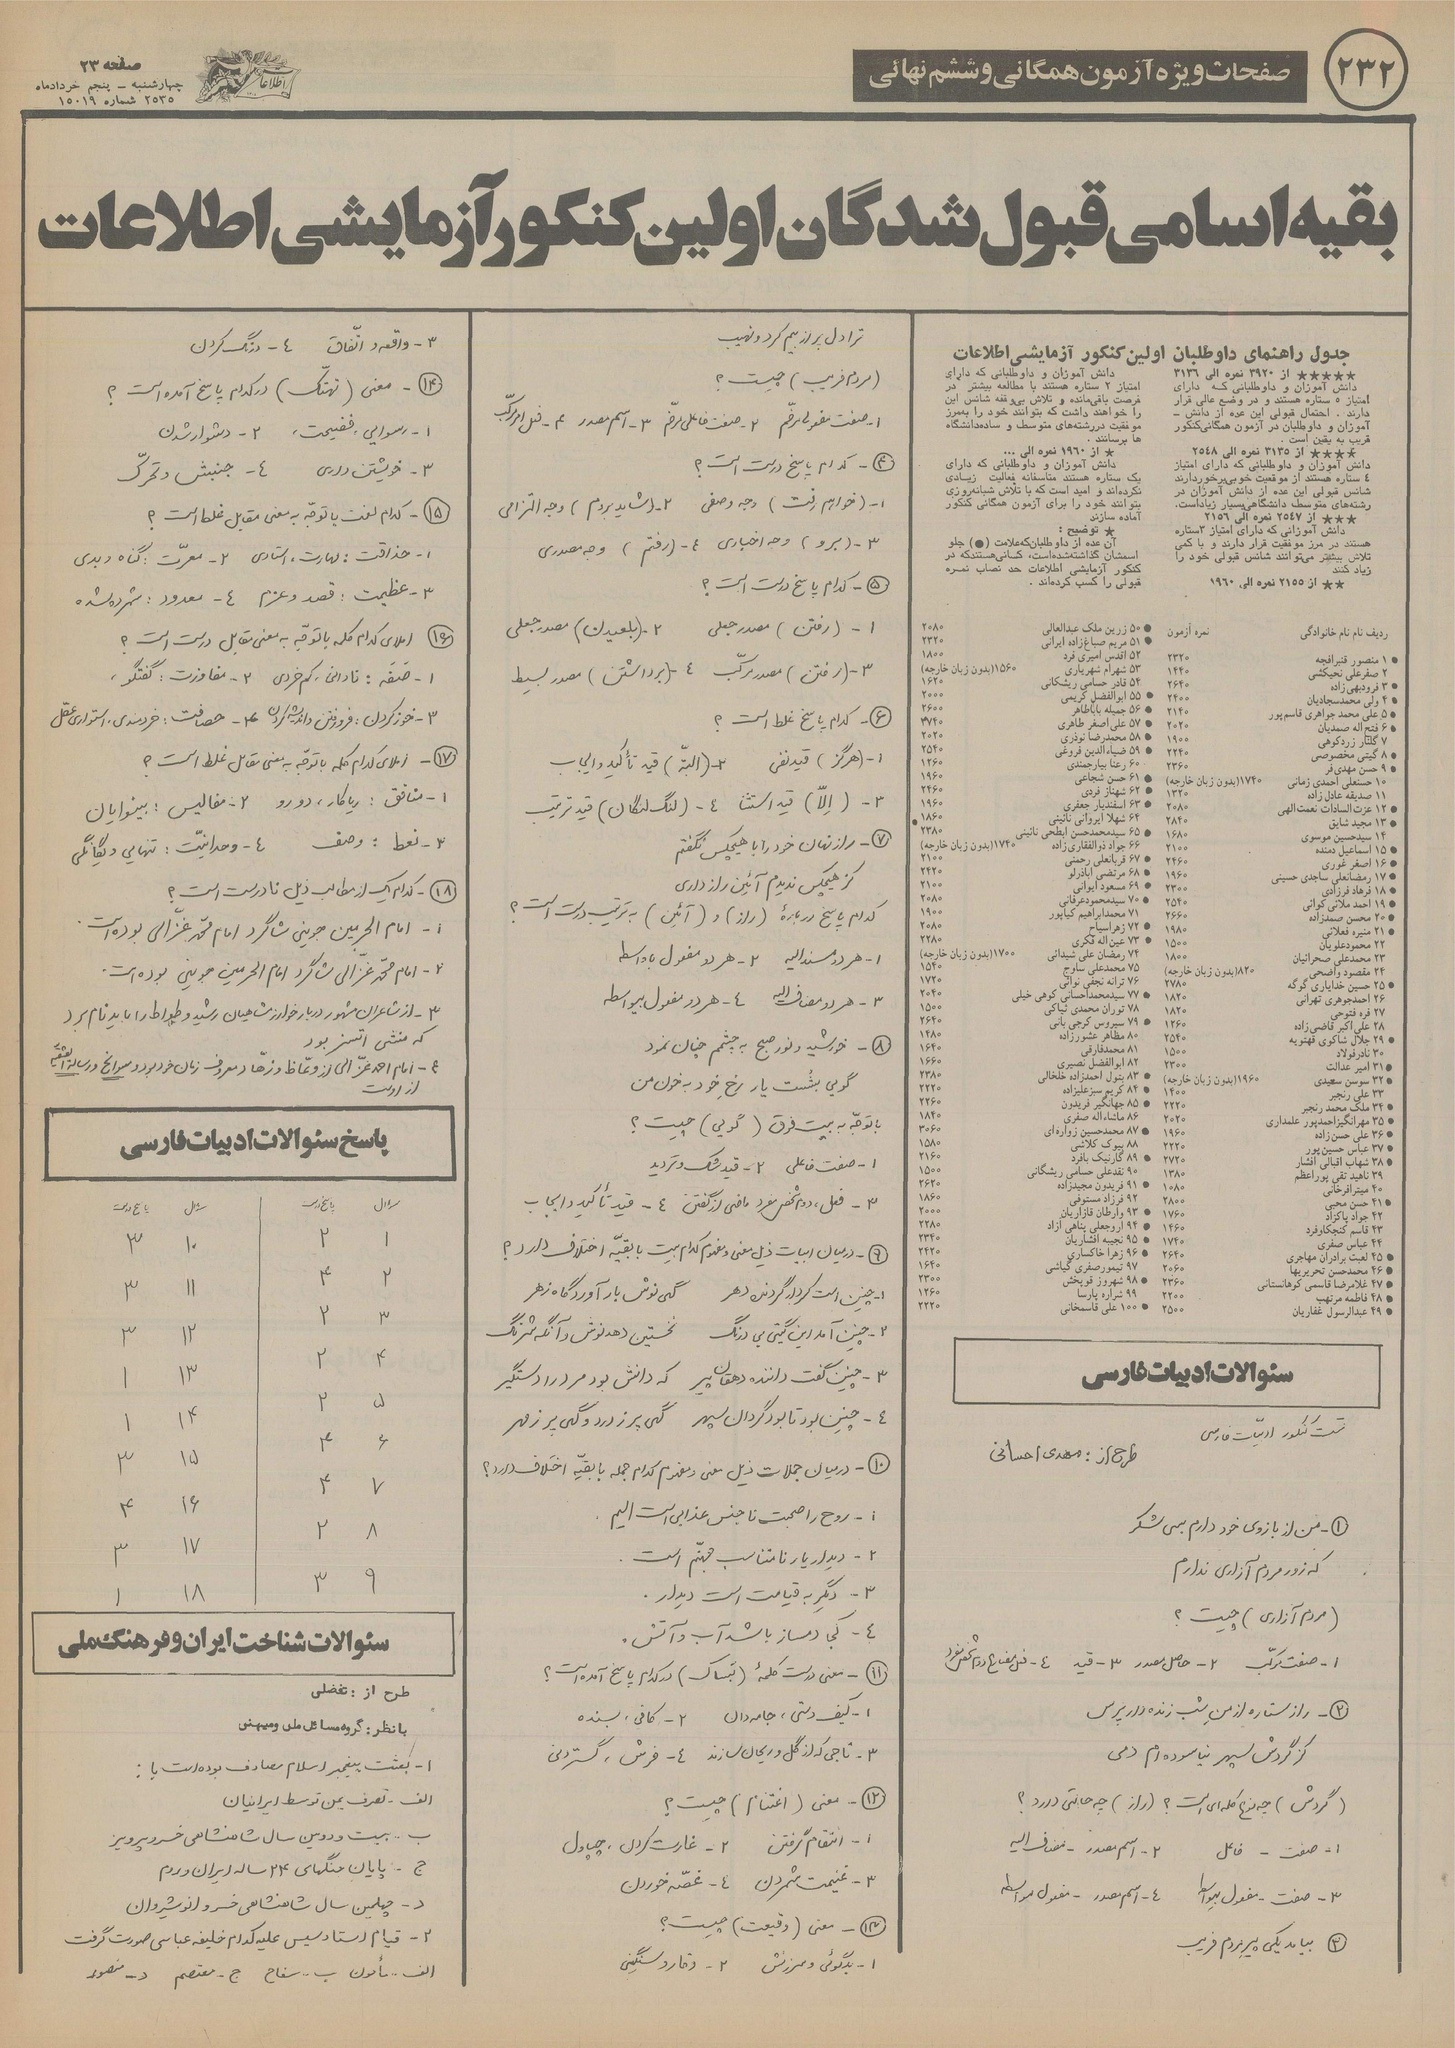 ۲۳۲
صفحات ویژه آزمون همگانی و ششم نهائی
صفحه ۲۳
چهارشنبه - پنجم خردادماه
۲۵۳۵ شماره ۱۵۰۱۹
بقیه اسامی قبول شدگان اولین کنکور آزمایشی اطلاعات
جدول راهنمای داوطلبان اولین کنکور آزمایشی اطلاعات
★★★★★ از ۳۹۲۰ نمره الی ۳۱۳۶
دانش آموزان و داوطلبانی که دارای
امتیاز ۵ ستاره هستند و در وضع عالی قرار
دارند . احتمال قبولی این عده از دانش -
آموزان و داوطلبان در آزمون همگانی کنکور
قریب به یقین است .
★★★★ از ۳۱۳۵ نمره الی ۲۵۴۸
دانش آموزان و داوطلبانی که دارای امتیاز
۴ ستاره هستند از موقعیت خوبی برخوردارند
شانس قبولی این عده از دانش آموزان در
رشته‌های متوسط دانشگاهی بسیار زیاد است.
★★★ از ۲۵۴۷ نمره الی ۲۱۵۶
دانش آموزانی که دارای امتیاز ۳ ستاره
هستند در مرز موفقیت قرار دارند و با کمی
تلاش بیشتر می‌توانند شانس قبولی خود را
زیاد کنند
★★ از ۲۱۵۵ نمره الی ۱۹۶۰
دانش آموزان و داوطلبانی که دارای
امتیاز ۲ ستاره هستند با مطالعه بیشتر در
فرصت باقی‌مانده و تلاش بی‌وقفه شانس این
را خواهند داشت که بتوانند خود را به‌مرز
موفقیت دررشته‌های متوسط و ساده دانشگاه
ها برسانند .
★ از ۱۹۶۰ نمره الی ...
دانش آموزان و داوطلبانی که دارای
یک ستاره هستند متاسفانه فعالیت زیادی
نکرده‌اند و امید است که با تلاش شبانه‌روزی
بتوانند خود را برای آزمون همگانی کنکور
آماده سازند
★ توضیح :
آن عده از داوطلبان که علامت (●) جلو
اسمشان گذاشته شده‌است، کسانی هستند که در
کنکور آزمایشی اطلاعات حد نصاب نمره
قبولی را کسب کرده‌اند .
ردیف نام نام خانوادگی نمره آزمون
● ۱ منصور قنبرافجه ۲۳۲۰
۲ صفرعلی نحیکشی ۱۴۴۰
● ۳ فرودیهی‌زاده ۲۶۴۰
● ۴ ولی محمدسجادیان ۲۴۰۰
● ۵ علی محمد جواهری قاسم‌پور ۲۱۴۰
● ۶ فتح‌اله صمدیان ۲۰۲۰
۷ گلنار زردکوهی ۱۹۰۰
● ۸ گیتی مخصوصی ۲۲۴۰
● ۹ حسن مهدی‌فر ۲۳۶۰
۱۰ حسنعلی احمدی زمانی ۱۷۴۰(بدون زبان خارجه)
۱۱ صدیقه عادل زاده ۱۳۲۰
● ۱۲ عزت‌السادات نعمت‌الهی ۲۰۸۰
● ۱۳ مجید شایق ۲۸۴۰
۱۴ سیدحسین موسوی ۱۶۸۰
● ۱۵ اسماعیل دمنده ۲۱۰۰
● ۱۶ اصغر غوری ۲۴۶۰
● ۱۷ رمضانعلی ساجدی حسینی ۱۹۶۰
● ۱۸ فرهاد فرزادی ۲۳۰۰
● ۱۹ احمد ملائی کوائی ۲۵۴۰
● ۲۰ محسن صمدزاده ۲۶۶۰
● ۲۱ منیره فعلانی ۱۹۸۰
۲۲ محمودعلویان ۱۵۰۰
۲۳ محمدعلی صحرائیان ۱۸۰۰
۲۴ مقصود واضحی ۸۲۰(بدون زبان خارجه)
● ۲۵ حسین خدایاری گوگه ۲۷۸۰
۲۶ احمدجوهری تهرانی ۱۸۲۰
۲۷ فره فتوحی ۱۸۲۰
۲۸ علی‌اکبر قاضی‌زاده ۱۲۶۰
● ۲۹ جلال شاکوی قهتویه ۲۵۴۰
۳۰ نادرفولاد ۱۵۰۰
● ۳۱ امیر عدالت ۲۳۰۰
● ۳۲ سوسن سعیدی ۱۹۶۰(بدون زبان خارجه)
۳۳ علی رنجبر ۱۴۰۰
● ۳۴ ملک محمد رنجبر ۲۲۲۰
● ۳۵ مهرانگیزاحمدپور علمداری ۲۰۲۰
● ۳۶ علی حسن‌زاده ۱۹۶۰
● ۳۷ عباس حسین‌پور ۲۲۲۰
● ۳۸ شهاب اقبالی افشار ۲۷۲۰
۳۹ ناهید تقی پوراعظم ۱۳۸۰
۴۰ میترافرخانی ۱۰۸۰
● ۴۱ حسن محبی ۲۸۰۰
۴۲ جواد پاکزاد ۱۷۶۰
۴۳ قاسم کنجکاوفرد ۱۴۶۰
۴۴ عباس صفری ۱۷۴۰
● ۴۵ لعبت برادران مهاجری ۲۶۴۰
● ۴۶ محمدحسن تحریریها ۲۰۶۰
● ۴۷ غلامرضا قاسمی کوهانستانی ۲۳۶۰
● ۴۸ فاطمه مرتهب ۲۲۰۰
● ۴۹ عبدالرسول غفاریان ۲۵۰۰
● ۵۰ زرین ملک عبدالعالی ۲۰۸۰
● ۵۱ مریم صباغ‌زاده ایرانی ۲۳۲۰
۵۲ اقدس امیری فرد ۱۸۰۰
۵۳ شهرام شهریاری ۱۵۶۰(بدون زبان خارجه)
۵۴ قادر حسامی ریشکانی ۱۶۲۰
● ۵۵ ابوالفضل کریمی ۲۰۰۰
● ۵۶ جمیله باباطاهر ۲۶۰۰
● ۵۷ علی‌اصغر طاهری ۲۷۴۰
● ۵۸ محمدرضا نوذری ۲۰۲۰
● ۵۹ ضیاءالدین فروغی ۲۵۴۰
۶۰ رعنا بیارجمندی ۱۲۶۰
● ۶۱ حسن شجاعی ۱۹۶۰
● ۶۲ شهناز فردی ۲۴۶۰
● ۶۳ اسفندیار جعفری ۱۹۶۰
۶۴ شهلا ایروانی نائینی ۱۸۶۰
● ۶۵ سیدمحمدحسن ابطحی نائینی ۲۳۸۰
۶۶ جواد ذوالفقاری‌زاده ۱۷۴۰(بدون زبان خارجه)
● ۶۷ قربانعلی رحمتی ۲۱۰۰
● ۶۸ مرتضی آبادرلو ۲۴۲۰
● ۶۹ مسعود ایوانی ۲۱۰۰
● ۷۰ سیدمحمودعرفانی ۲۰۸۰
۷۱ محمدابراهیم کیاپور ۱۹۰۰
● ۷۲ زهراسیاح ۲۰۸۰
● ۷۳ عین‌اله فکری ۲۲۸۰
۷۴ رمضان علی شیدائی ۱۷۰۰(بدون زبان خارجه)
۷۵ محمدعلی ساوج ۱۵۴۰
۷۶ ترانه نجفی نوائی ۱۷۲۰
● ۷۷ سیدمحمداحسانی کوهی خیلی ۲۰۴۰
۷۸ توران محمدی تیاکی ۱۵۰۰
● ۷۹ سیروس کرجی بانی ۲۶۴۰
۸۰ مظاهر عشورزاده ۱۲۸۰
۸۱ محمدفارقی ۱۶۴۰
۸۲ ابوالفضل نصیری ۱۶۶۰
● ۸۳ بتول احمدزاده خلخالی ۲۳۸۰
● ۸۴ کریم سبزعلیزاده ۲۲۲۰
● ۸۵ جهانگیر فریدون ۲۲۶۰
۸۶ ماشاءاله صفری ۱۸۴۰
● ۸۷ محمدحسین زواره‌ای ۳۰۶۰
۸۸ بیوک کلاشی ۱۵۸۰
● ۸۹ گارنیک بافرد ۲۱۶۰
۹۰ نقدعلی حسامی ریشگانی ۱۵۰۰
● ۹۱ فریدون مجیدزاده ۲۶۲۰
۹۲ فرزاد مستوفی ۱۸۶۰
● ۹۳ وارطان قازاریان ۲۰۰۰
● ۹۴ اروجعلی پناهی آزاد ۲۲۸۰
● ۹۵ نجیبه افشاریان ۲۳۴۰
● ۹۶ زهرا خاکساری ۲۴۲۰
۹۷ تیمورصفری گیاشی ۱۶۴۰
● ۹۸ شهروز قویخش ۲۳۰۰
۹۹ شراره پارسا ۱۲۶۰
● ۱۰۰ علی قاسمخانی ۲۲۲۰
سئوالات ادبیات فارسی
تست کنکور ادبیّات فارسی
طرح از : مهدی احسانی
۱- من از بازوی خود دارم بسی شکر
که زور مردم آزاری ندارم
(مردم آزاری) چیست ؟
۱- صفت مرکّب ۲- حاصل مصدر ۳- قید ٤- فعل مضارع دوم شخص مفرد
۲- راز ستاره از من شب زنده دار پرس
کز گردش سپهر نیاسوده ام دمی
(گردش) چه نوع کلمه ای است ؟ (راز) چه حالتی دارد ؟
۱- صفت - فاعل ۲- اسم مصدر - مضاف الیه
۳- صفت - مفعول بیواسطه ٤- اسم مصدر - مفعول بیواسطه
۳ بیامد یکی پیر مردم فریب
ترا دل بر از بیم کرد و نهیب
(مردم فریب) چیست ؟
۱- صفت مفعولی مرخّم ۲- صفت فاعلی مرخّم ۳- اسم مصدر ۴- فعل امر مرکّب
۴- کدام پاسخ درست است ؟
۱- (خواهم رفت) وجه وصفی ۲- (شاید بروم) وجه التزامی
۳- (برو) وجه اخباری ٤- (رفتم) وجه مصدری
۵- کدام پاسخ درست است ؟
۱- (رفتن) مصدر جعلی ۲- (بلعیدن) مصدر جعلی
۳- (رفتن) مصدر مرکّب ٤- (برداشتن) مصدر بسیط
۶- کدام پاسخ غلط است ؟
۱- (هرگز) قید نفی ۲- (البتّه) قید تأکید و ایجاب
۳- (اِلّا) قید استثنا ٤- (لنگ لنگان) قید ترتیب
۷- راز نهان خود را با هیچکس نگفتم
کز هیچکس ندیدم آئین راز داری
کدام پاسخ دربارهٔ (راز) و (آئین) به ترتیب درست است ؟
۱- هر دو مسند الیه ۲- هر دو مفعول باواسطه
۳- هر دو مضاف الیه ٤- هر دو مفعول بیواسطه
۸- خورشید و نور صبح به چشم چنان نمود
گویی بشُست یار رخ خود به خون من
باتوجّه به بیت فوق (گویی) چیست ؟
۱- صفت فاعلی ۲- قید شک و تردید
۳- فعل، دوم شخص مفرد ماضی از گفتن ٤- قید تأکید و ایجاب
۹- درمیان ابیات ذیل معنی و مفهوم کدام بیت با بقیّه اختلاف دارد ؟
۱- چنین است کردار گردنده دهر گهی نوش بار آورد گاه زهر
۲- چنین آمد این گیتی بی درنگ نخستین دهد نوش و آنگه شرنگ
۳- چنین گفت داننده دهقان پیر که دانش بود مرد را دستگیر
٤- چنین بود تا بود گردان سپهر گهی پر ز درد و گهی پر ز مهر
۱۰- درمیان جملات ذیل معنی و مفهوم کدام جمله با بقیّه اختلاف دارد ؟
۱- روح را صحبت ناجنس عذابی است الیم .
۲- دیدار یار نامتناسب جهنّم است .
۳- دیگر به قیامت است دیدار .
٤- کجا دمساز باشد آب و آتش .
۱۱- معنی درست کلمهٔ (بَساک) در کدام پاسخ آمده است ؟
۱- کیف دستی، جامه دان ۲- کافی، بسنده
۳- تاجی که از گل و ریحان سازند ٤- فرش، گستردنی
۱۲- معنی (اغتنام) چیست ؟
۱- انتقام گرفتن ۲- غارت کردن، چپاول
۳- غنیمت شمردن ٤- غصّه خوردن
۱۳- معنی (وقیعت) چیست ؟
۱- بدگوئی و سرزنش ۲- وقار و سنگینی
۳- واقعه و اتّفاق ٤- درنگ کردن
۱۴- معنی (تهتّک) در کدام پاسخ آمده است ؟
۱- رسوایی، فضیحت، ۲- دشوار شدن
۳- خویشتن داری ٤- جنبش و تحرّک
۱۵- کدام لغت باتوجّه به معنی مقابل غلط است ؟
۱- حذاقت : مهارت، استادی ۲- معرّت : گناه و بدی
۳- عظیمت : قصد و عزم ٤- معدود : شمرده شده
۱۶ املای کدام کلمه باتوجّه به معنی مقابل درست است ؟
۱- صَفَه : نادانی، کم خردی ۲- مفاوزت : گفتگو،
۳- خوز کردن : فرو رفتن و اندیشه کردن ۴- حصافت : خردمندی، استواری عقل
۱۷- املای کدام کلمه باتوجّه به معنی مقابل غلط است ؟
۱- منافق : ریاکار، دورو ۲- مفالیس : بینوایان
۳- نعط : وصف ٤- وحدانیّت : تنهایی و یگانگی
۱۸- کدام یک از مطالب ذیل نادرست است ؟
۱- امام الحرمین جوینی شاگرد امام محمّد غزّالی بوده است .
۲- امام محمّد غزّالی شاگرد امام الحرمین جوینی بوده است .
۳- از شاعران مشهور دربار خوارزمشاهیان رشید وطواط را باید نام برد
که منشی اتسز بود
٤- امام احمد غزّالی از وعّاظ و زهّاد معروف زمان خود بود و سوانح و رسالة العشقیّه
از اوست
پاسخ سئوالات ادبیات فارسی
سؤال پاسخ درست سؤال پاسخ درست
۱ ۲ ۱۰ ۳
۲ ۴ ۱۱ ۳
۳ ۲ ۱۲ ۳
۴ ۲ ۱۳ ۱
۵ ۲ ۱۴ ۱
۶ ۴ ۱۵ ۳
۷ ۴ ۱۶ ۴
۸ ۲ ۱۷ ۳
۹ ۳ ۱۸ ۱
سئوالات شناخت ایران و فرهنگ ملی
طرح از : تفضلی
بانظر : گروه مسائل ملی و میهنی
۱- بعثت پیغمبر اسلام مصادف بوده است با :
الف - تصرف یمن توسط ایرانیان
ب - بیست و دومین سال شاهنشاهی خسرو پرویز
ج - پایان جنگهای ۲۴ ساله ایران و روم
د- چهلمین سال شاهنشاهی خسرو انوشیروان
۲- قیام استاد سیس علیه کدام خلیفه عباسی صورت گرفت
الف - مأمون ب - سفاح ج - معتصم د- منصور